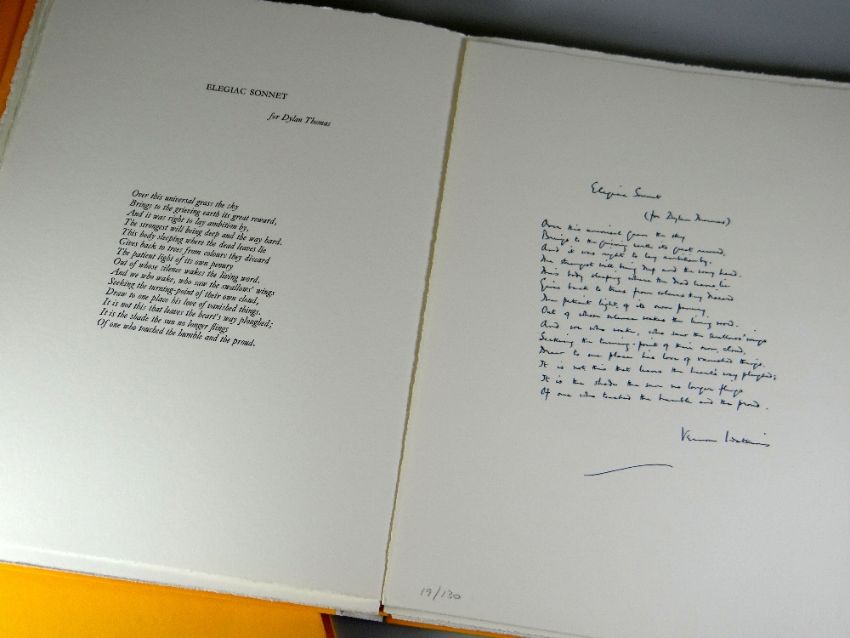 ELEGIAC SONNET
for Dylan Thomas
Over this universal grass the sky
Brings to the grieving earth its great reward,
And it was right to lay ambition by,
The strongest will being deep and the way hard.
This body sleeping where the dead leaves lie
Gives back to trees from colours they discard
The patient light of its own penury
Out of whose silence wakes the living word.
And we who wake, who saw the swallows' wings
Seeking the turning-point of their own cloud,
Draw to one place his love of vanished things.
It is not this that leaves the heart's way ploughed;
It is the shade the sun no longer flings
Of one who touched the humble and the proud.
Elegiac Sonnet
(for Dylan Thomas)
Over this universal grass the sky
Brings to the grieving earth its great reward,
And it was right to lay ambition by,
The strongest will being deep and the way hard.
This body sleeping where the dead leaves lie
Gives back to trees from colours they discard
The patient light of its own penury,
Out of whose silence wakes the living word.
And we who wake, who saw the swallows' wings
Seeking the turning-point of their own cloud,
Draw to one place his love of vanished things.
It is not this that leaves the heart's way ploughed;
It is the shade the sun no longer flings
Of one who touched the humble and the proud.
Vernon Watkins
19/130